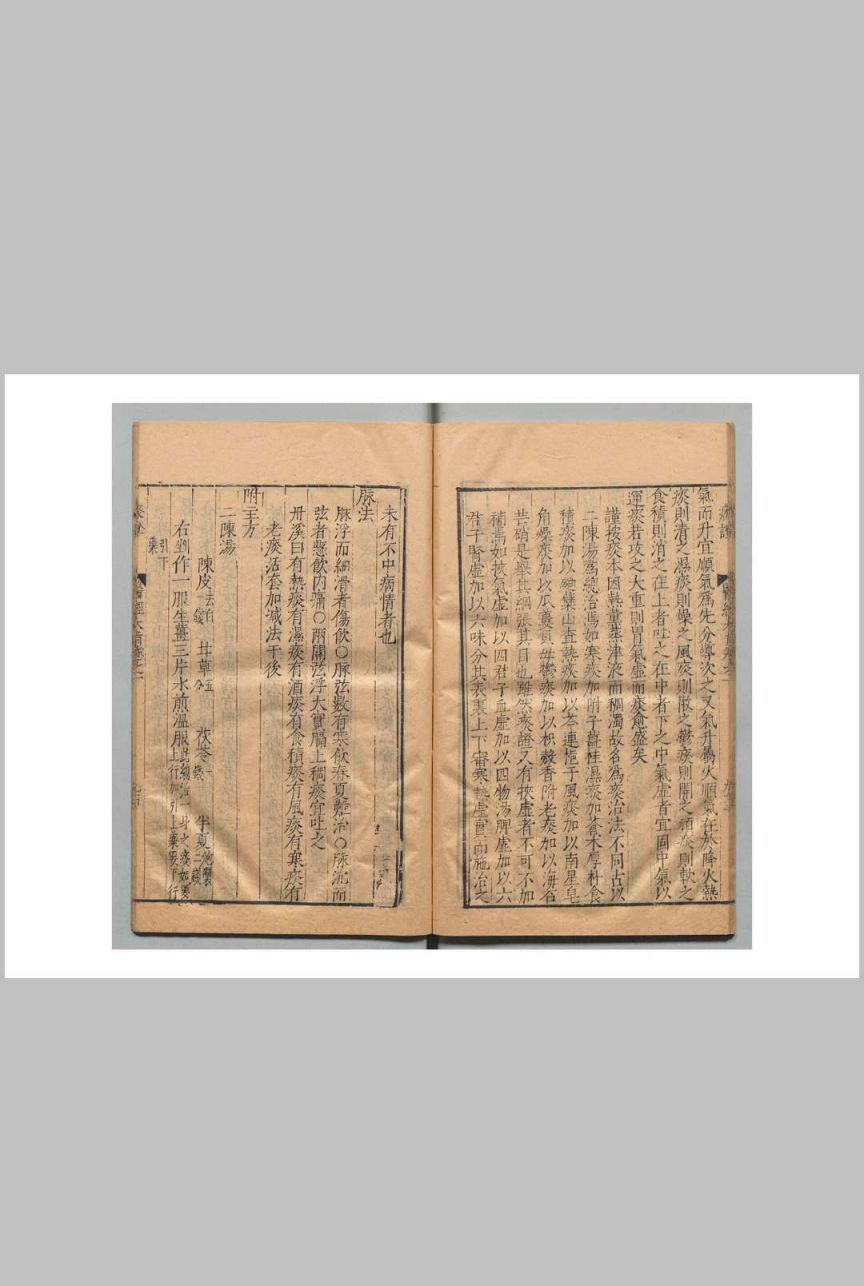 氣而升宜順氣爲先分導次之又氣升屬火順氣在於降火熱
痰則清之濕痰則燥之風痰則散之鬱痰則開之頑痰則軟之
食積則消之在上者吐之在中者下之中氣虛者宜固中氣以
運痰若攻之太重則胃氣虛而痰愈盛矣
謹按痰本因熱薰蒸津液而稠濁故名爲痰治法不同古以
二陳湯爲總治焉如寒痰加附子薑桂濕痰加蒼术厚朴食
積痰加以麯糵山查熱痰加以芩連梔子風痰加以南星皂
角燥痰加以瓜蔞貝母鬱痰加以枳殼香附老痰加以海石
芒硝是舉其綱張其目也雖然痰證又有挾虛者不可不加
補焉如挾氣虛加以四君子血虛加以四物湯脾虛加以六
君子腎虛加以六味分其表裏上下審寒熱虛實而施治之
未有不中病情者也
脉法
脉浮而細滑者傷飲○脉弦數有寒飲春夏難治○脉沉而
弦者懸飲内痛○兩關弦浮大實膈上稠痰宜吐之
丹溪曰有熱痰有濕痰有酒痰有食積痰有風痰有寒痰有
老痰活套加减法于後
附主方
二陳湯
陳皮去白一錢 甘草五分 茯苓一錢 半夏二錢
右剉作一服生薑三片水煎溫服此總治一身之痰如要上行加引上藥要下行
引下藥